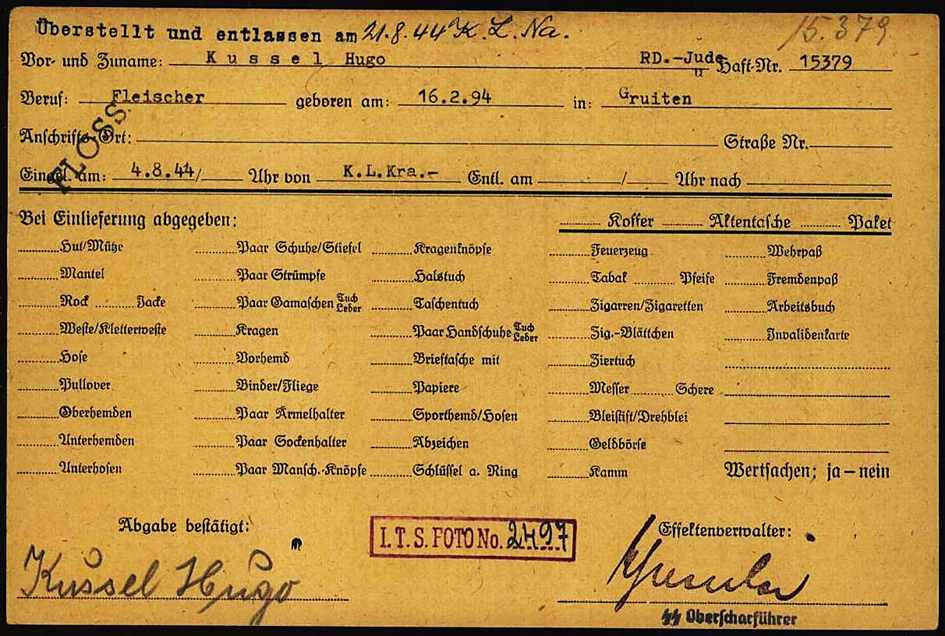 15.379
Überstellt und entlassen am 21.8.44 K.L.Na.
Vor- und Zuname: Kussel Hugo RD.-Jude Haft-Nr. 15379
Beruf: Fleischer geboren am: 16.2.94 in: Gruiten
Anschrifts-Ort: Straße Nr.
FLOSS
Eingel. am: 4.8.44/ Uhr von K.L.Kra.- Entl. am / Uhr nach
Bei Einlieferung abgegeben: Koffer Aktentasche Paket
Hut/Mütze Paar Schuhe/Stiefel Kragenknöpfe Feuerzeug Wehrpaß
Mantel Paar Strümpfe Halstuch Tabak Pfeife Fremdenpaß
Rock Jacke Paar Gamaschen Tuch Leder Taschentuch Zigarren/Zigaretten Arbeitsbuch
Weste/Kletterweste Kragen Paar Handschuhe Tuch Leder Zig.-Blättchen Invalidenkarte
Hose Vorhemd Brieftasche mit Ziertuch
Pullover Binder/Fliege Papiere Messer Schere
Oberhemden Paar Ärmelhalter Sporthemd/Hosen Bleistift/Drehblei
Unterhemden Paar Sockenhalter Abzeichen Geldbörse
Unterhosen Paar Mansch.-Knöpfe Schlüssel a. Ring Kamm Wertsachen; ja – nein
Abgabe bestätigt: I.T.S. FOTO No. 2497 Effektenverwalter:
Kussel Hugo
SS Oberscharführer